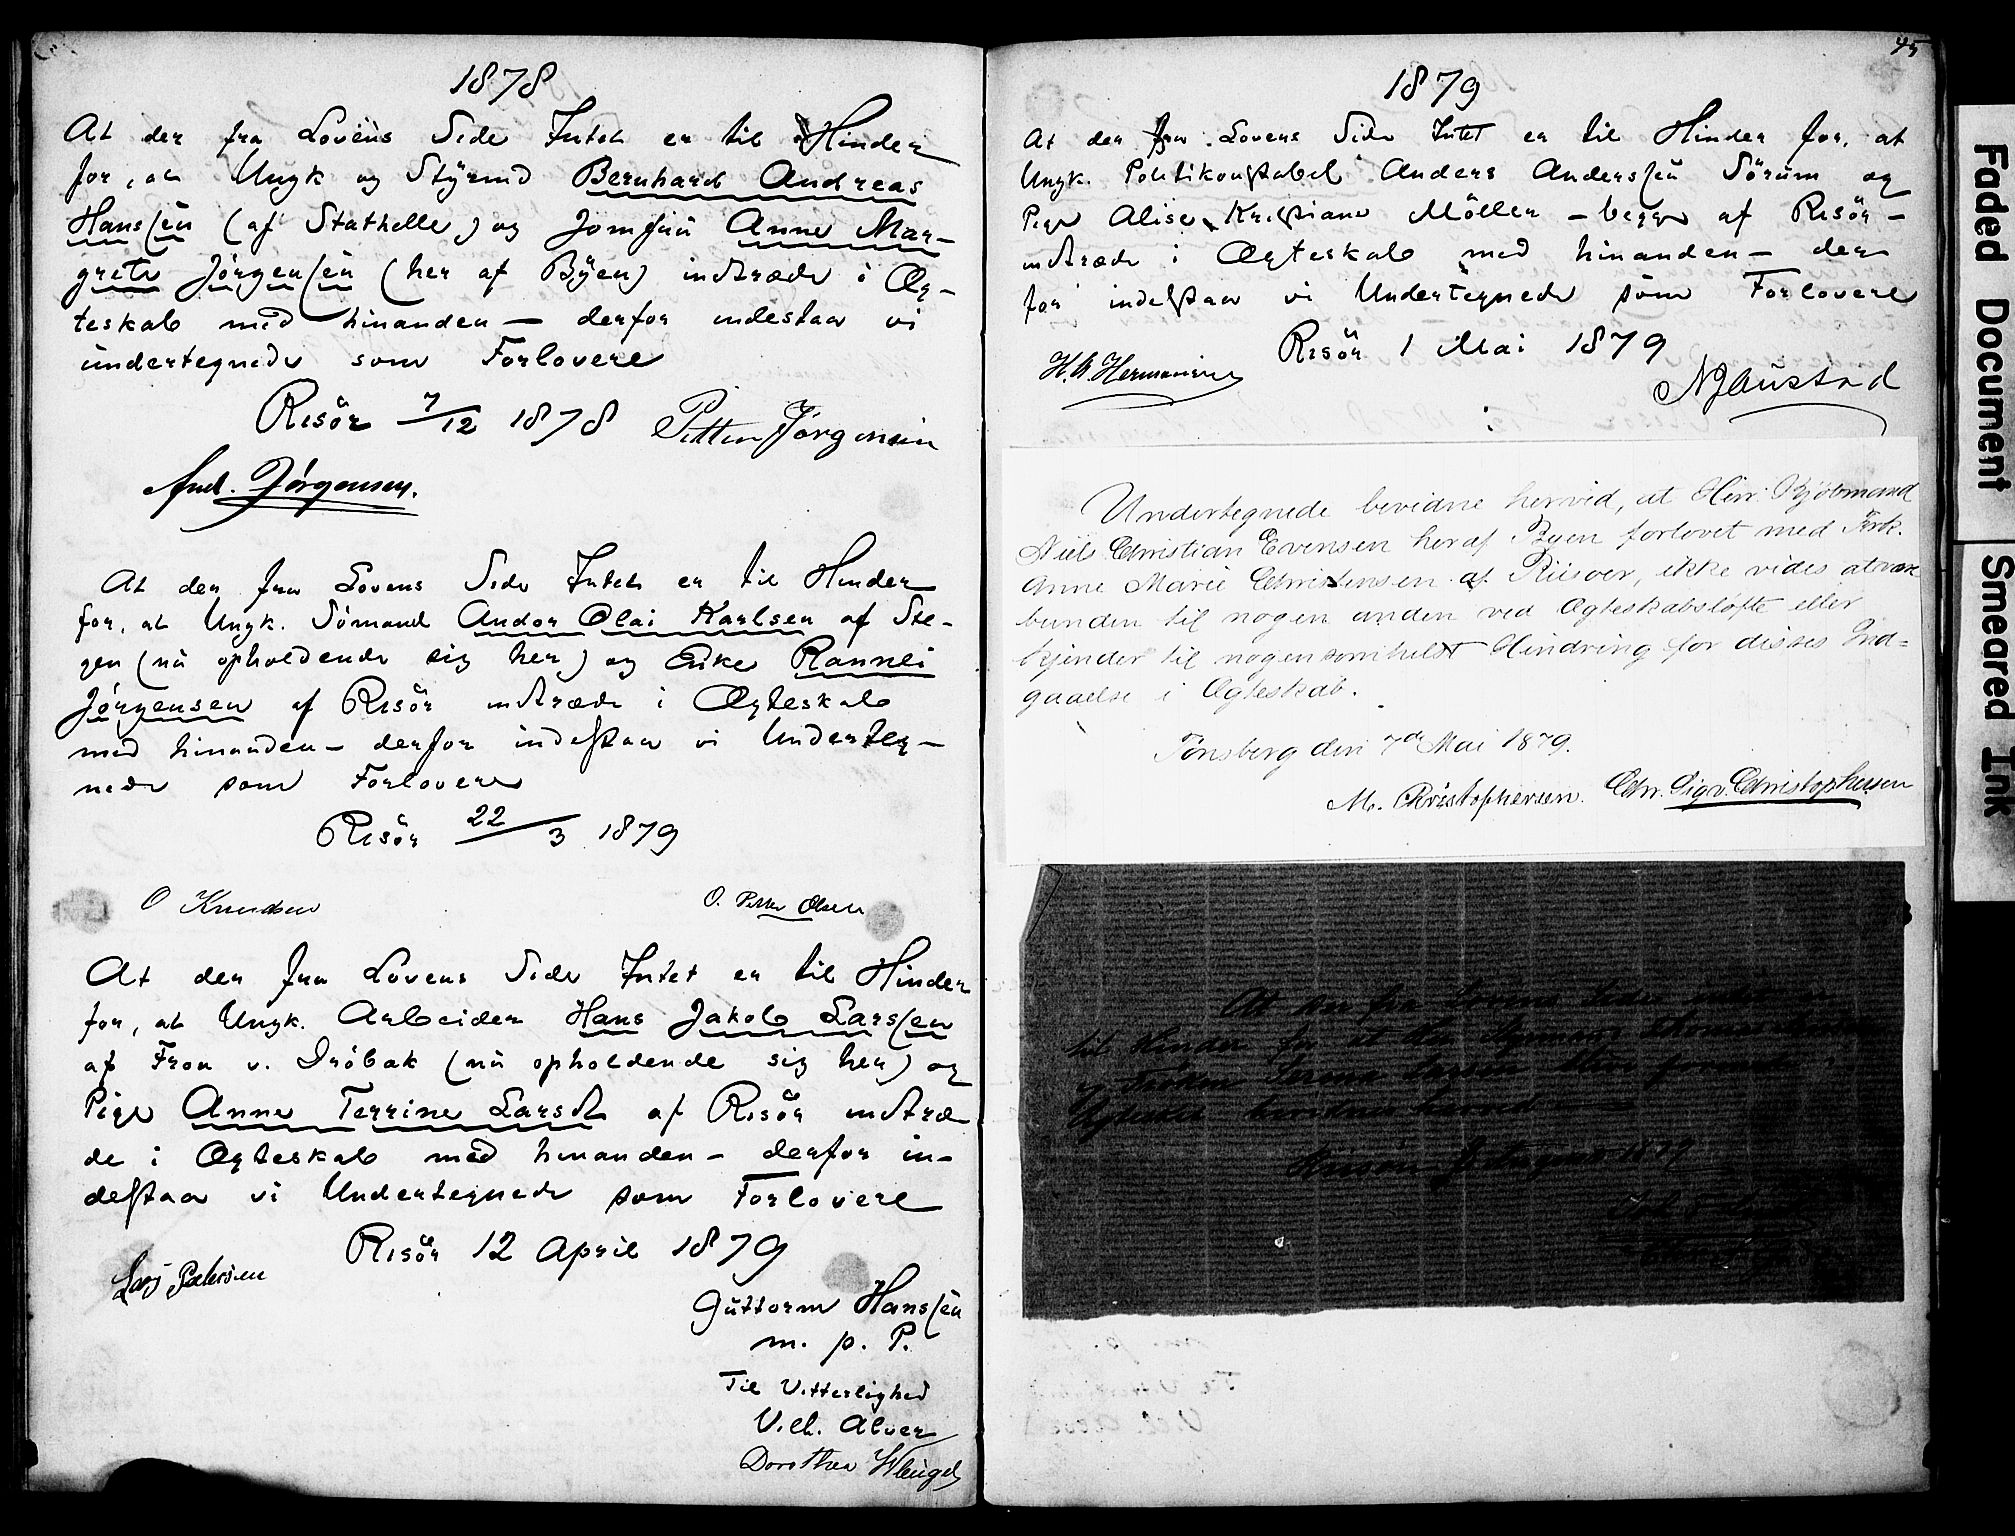 1878
At der fra Lovens Side Intet er til Hinder
for, at Ungk og Styrmd Bernhard Andreas
Hanssen (af Stathelle) og Jomfru Anne Mar-
grete Jörgensen (her af Byen) indtræde i Æg-
teskab med hinanden — derfor indestaar vi
undertegnede som Forlovere
Risör 7/12 1878 Petter Jörgensen
And. Jörgensen.
At der fra Lovens Side Intet er til Hinder
for, at Ungk. Sömand Andor Olai Karlsen af Ste-
gen (nu opholdende sig her) og Enke Rannei
Jörgensen af Risör indtræde i Ægteskab
med hinanden — derfor indestaar vi Underteg-
nede som Forlovere
Risör 22/3 1879
O Knudsen O. Petter Olsen
At der fra Lovens Side Intet er til Hinder
for, at Ungk. Arbeider Hans Jakob Larssen
af Fron v. Dröbak (nu opholdende sig her) og
Pige Anne Terrine Larsdt af Risör indtræ-
de i Ægteskab med hinanden — derfor in-
destaar vi Undertegnede som Forlovere
Risör 12 April 1879
Lars Pedersen
Guttorm Hanssen
m. p. P.
Til Vitterlighed
Vilh. Alver
Dorothea
45
1879
At der fra Lovens Side Intet er til Hinder for, at
Ungk. Politikonstabel Anders Anderssen Sörum og
Pige Alise Kristiane Möller — begge af Risör —
indtræde i Ægteskab med hinanden — der
for indestaar vi Undertegnede som Forlovere
Risör 1 Mai 1879
H. A. Hermansen
N J Austad
Undertegnede bevidne herved, at Herr Kjöbmand
Niels Christian Evensen her af Byen forlovet med Frk.
Anne Marie Christensen af Riisoer, ikke vides at være
bunden til nogen anden ved Ægteskabslöfte eller
kjender til nogensomhelst Hindring for disses Ind=
gaaelse i Ægteskab.
Tönsberg den 7de Mai 1879.
M. Christophersen. Chr. Sigv. Christophersen
At der fra Lovens Side
til Hinder for at
Fröken Serena Larsen
Ægteskab herved
1879
Faded Document
Smeared Ink